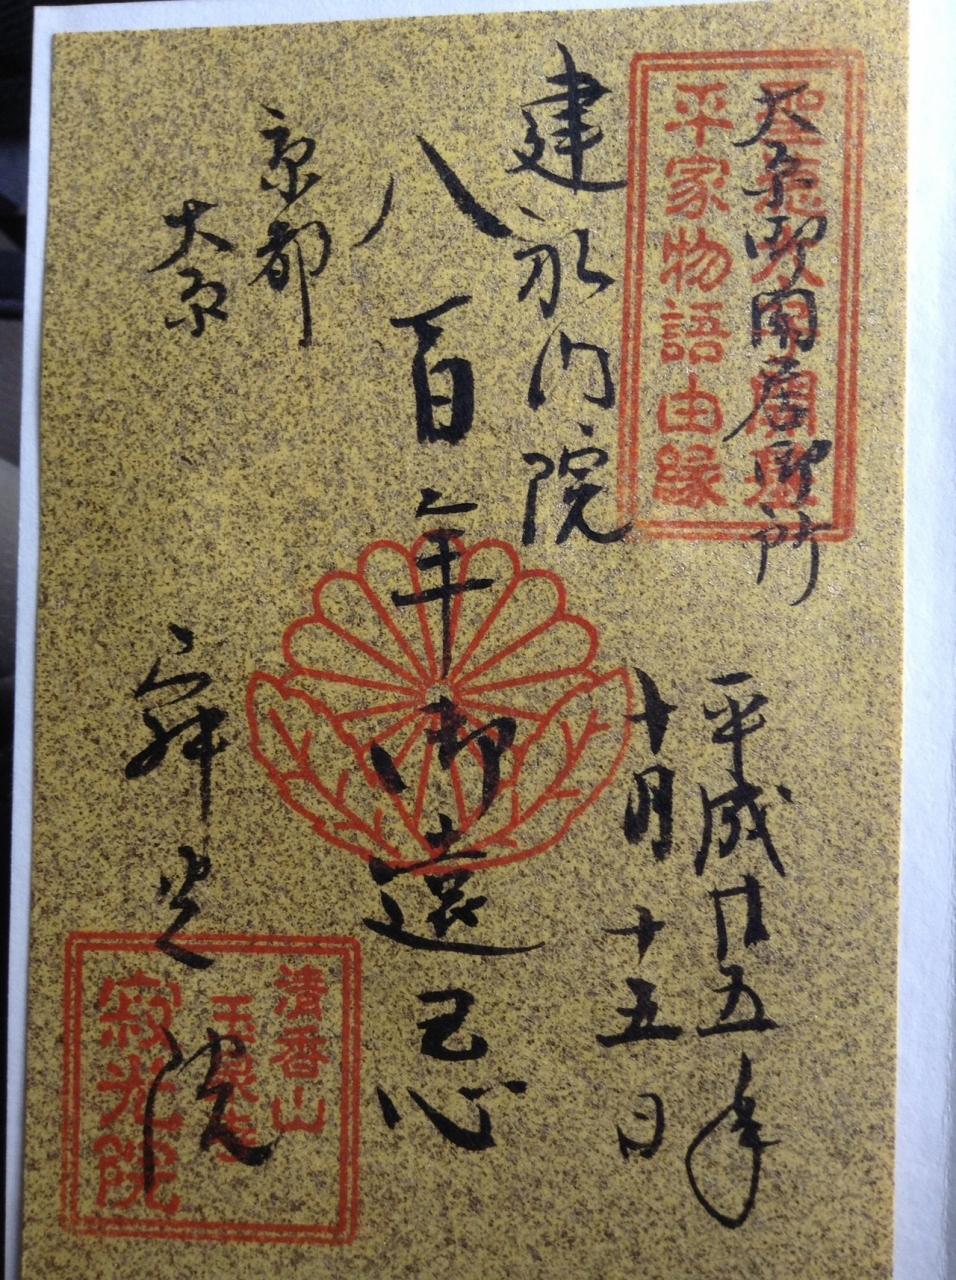 大原御閑居御所
聖徳太子開基
平家物語由縁
平成廿五年
十月十五日
建礼門院
八百年御遠忌
京都
大原
寂光院
清香山
玉泉寺
寂光院